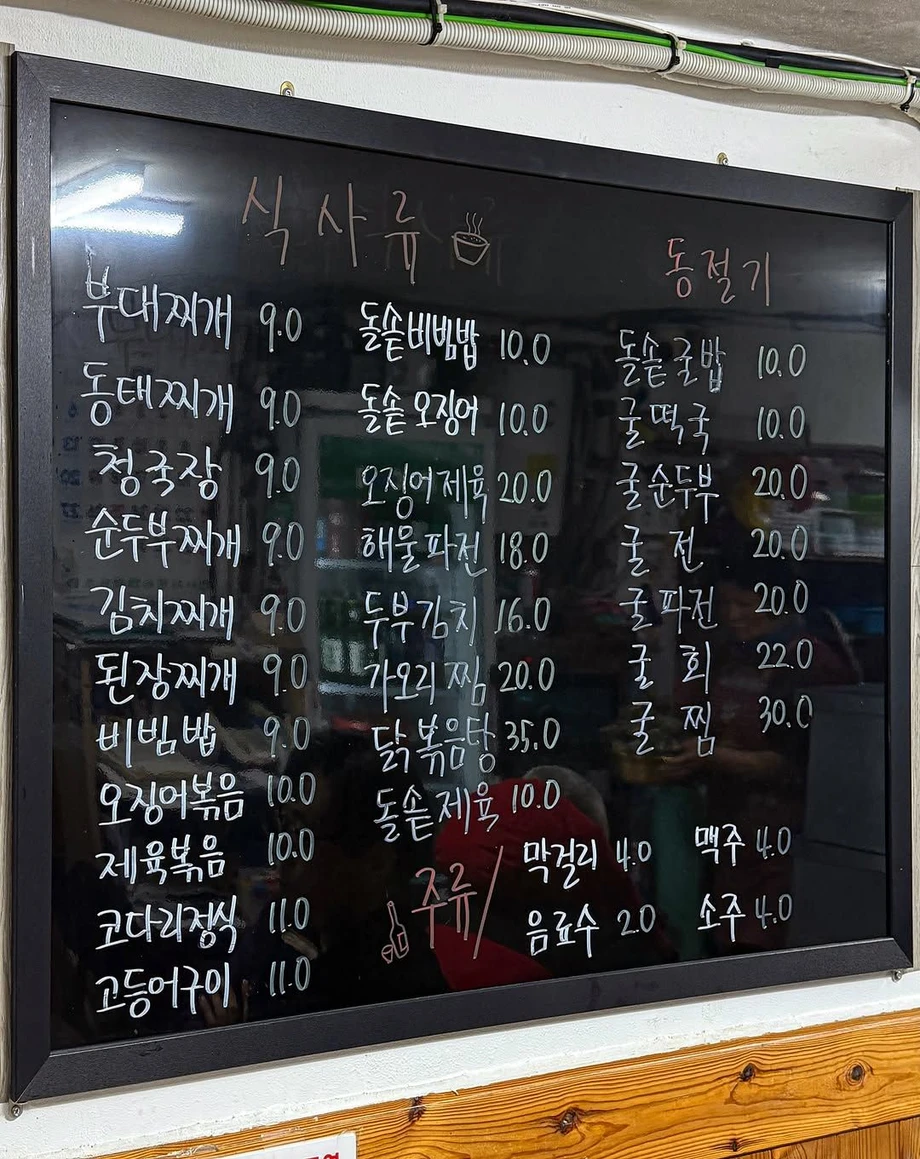 식사류
부대찌개 9.0
동태찌개 9.0
청국장 9.0
순두부찌개 9.0
김치찌개 9.0
된장찌개 9.0
비빔밥 9.0
오징어볶음 10.0
제육볶음 10.0
코다리정식 11.0
고등어구이 11.0
돌솥비빔밥 10.0
돌솥 오징어 10.0
오징어제육 20.0
해물파전 18.0
두부김치 16.0
가오리찜 20.0
닭볶음탕 35.0
돌솥제육 10.0
동절기
돌솥굴밥 10.0
굴떡국 10.0
굴순두부 20.0
굴전 20.0
굴파전 20.0
굴회 22.0
굴찜 30.0
주류/
막걸리 4.0 맥주 4.0
음료수 2.0 소주 4.0